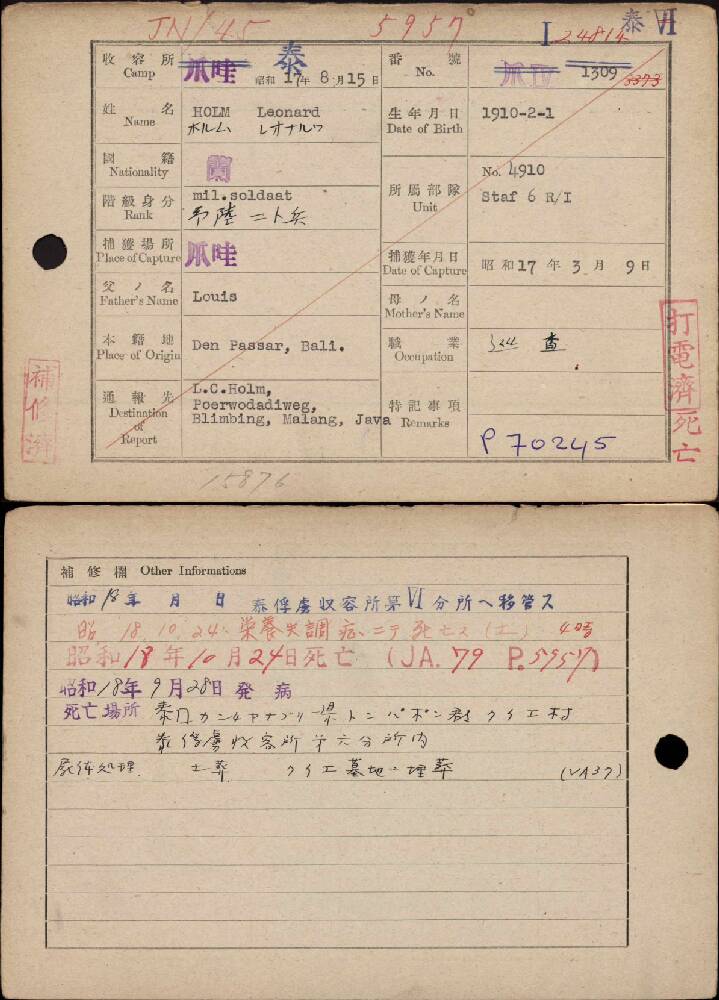 JN/45 5957 I 24814 泰 VI
收容所 Camp 爪哇 泰 昭和17年8月15日
番號 No. 爪IV 1309 3373
姓名 Name HOLM Leonard
ホルム レオナルヅ
生年月日 Date of Birth 1910-2-1
國籍 Nationality 蘭
階級身分 Rank mil.soldaat
蘭陸 二ト兵
所屬部隊 Unit No. 4910
Staf 6 R/I
捕獲場所 Place of Capture 爪哇
捕獲年月日 Date of Capture 昭和17年3月9日
父ノ名 Father's Name Louis
母ノ名 Mother's Name
本籍地 Place of Origin Den Passar, Bali.
職業 Occupation 巡査
通報先 Destination of Report L.C.Holm,
Poerwodadiweg,
Blimbing, Malang, Java
特記事項 Remarks P 70245
補修濟
打電濟死亡
15876
補修欄 Other Informations
昭和18年 月 日 泰俘虜収容所第VI分所へ移管ス
昭.18.10.24、栄養失調症ニテ死亡ス(土) 4時
昭和18年10月24日死亡 (JA.79 P.5957)
昭和18年9月28日発病
死亡場所 泰国カンチャナブリー県トンパポン郡クイエ村
泰俘虜收容所第六分所内
屍体処理 土葬 クイエ墓地ニ埋葬 (VA37)